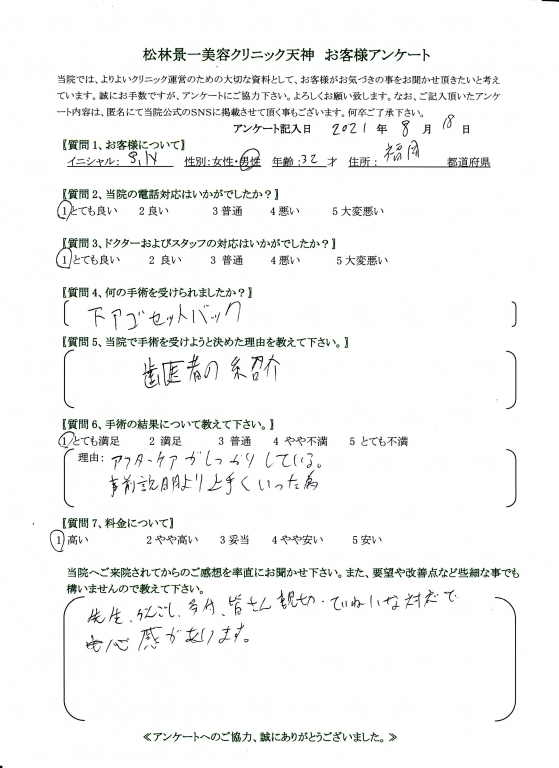 松林景一美容クリニック天神 お客様アンケート
当院では、よりよいクリニック運営のための大切な資料として、お客様がお気づきの事をお聞かせ頂きたいと考え
ています。誠にお手数ですが、アンケートにご協力下さい。よろしくお願い致します。なお、ご記入頂いたアンケ
ート内容は、匿名にて当院公式のSNSに掲載させて頂く事もございます。何卒ご了承下さい。
アンケート記入日 2021 年 8 月 18 日
〖質問1、お客様について〗
イニシャル: 性別:女性・男性 年齢:32 才 住所: 福岡 都道府県
〖質問2、当院の電話対応はいかがでしたか?〗
1とても良い 2 良い 3 普通 4 悪い 5 大変悪い
〖質問3、ドクターおよびスタッフの対応はいかがでしたか?〗
1とても良い 2 良い 3 普通 4 悪い 5 大変悪い
〖質問4、何の手術を受けられましたか?〗
下アゴセットバック
〖質問5、当院で手術を受けようと決めた理由を教えて下さい。〗
歯医者の紹介
〖質問6、手術の結果について教えて下さい。〗
1とても満足 2 満足 3 普通 4 やや不満 5 とても不満
理由: アフターケアがしっかりしている。
事前説明より上手くいった為
〖質問7、料金について〗
1 高い 2 やや高い 3 妥当 4 やや安い 5 安い
当院へご来院されてからのご感想を率直にお聞かせ下さい。また、要望や改善点など些細な事でも
構いませんので教えて下さい。
先生、かんごし、受付、皆さん親切・ていねいな対応で
安心感があります。
≪アンケートへのご協力、誠にありがとうございました。≫